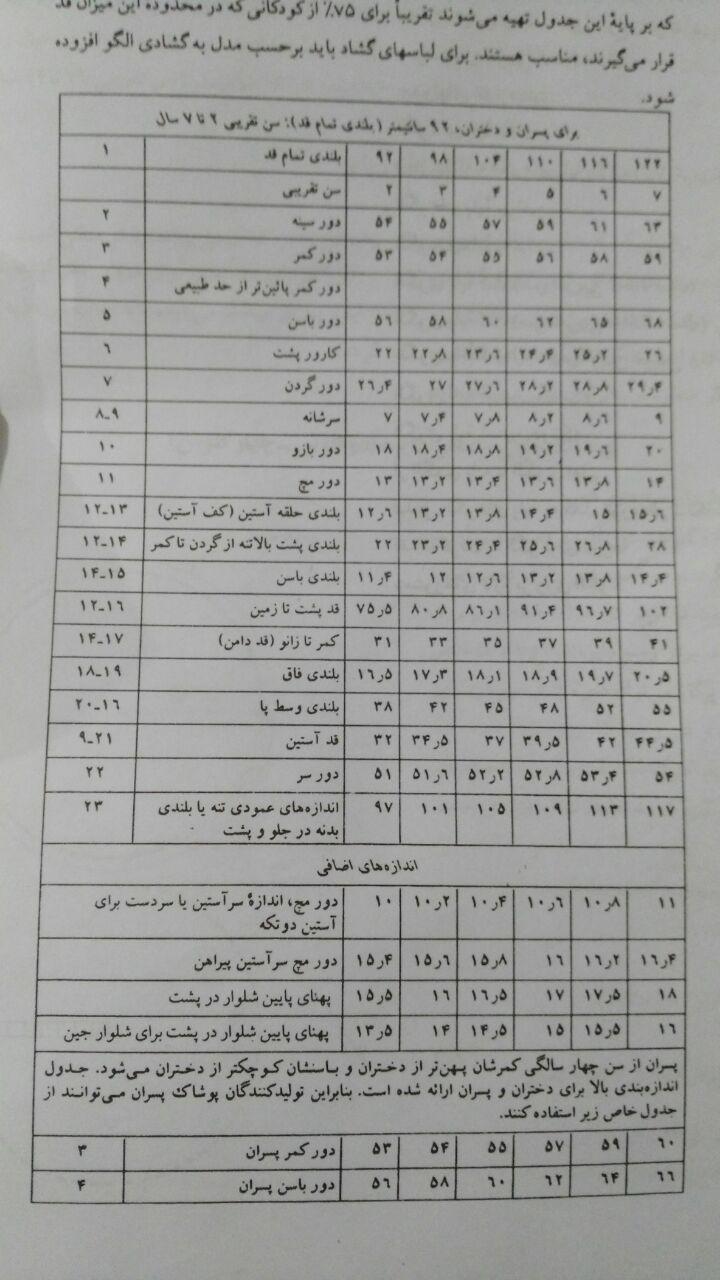 که بر پایهٔ این جدول تهیه می‌شوند تقریباً برای ۷۵٪ از کودکانی که در محدوده این میزان قد
قرار می‌گیرند، مناسب هستند. برای لباسهای گشاد باید برحسب مدل به گشادی الگو افزوده
شود.
برای پسران و دختران، ۹۲ سانتیمتر (بلندی تمام قد): سن تقریبی ۲ تا ۷ سال
۱ بلندی تمام قد ۹۲ ۹۸ ۱۰۴ ۱۱۰ ۱۱۶ ۱۲۲
سن تقریبی ۲ ۳ ۴ ۵ ۶ ۷
۲ دور سینه ۵۴ ۵۵ ۵۷ ۵۹ ۶۱ ۶۳
۳ دور کمر ۵۳ ۵۴ ۵۵ ۵۶ ۵۸ ۵۹
۴ دور کمر پائین‌تر از حد طبیعی
۵ دور باسن ۵۶ ۵۸ ۶۰ ۶۲ ۶۵ ۶۸
۶ کارور پشت ۲۲ ۲۲٫۸ ۲۳٫۶ ۲۴٫۴ ۲۵٫۲ ۲۶
۷ دور گردن ۲۶٫۴ ۲۷ ۲۷٫۶ ۲۸٫۲ ۲۸٫۸ ۲۹٫۴
۸-۹ سرشانه ۷ ۷٫۴ ۷٫۸ ۸٫۲ ۸٫۶ ۹
۱۰ دور بازو ۱۸ ۱۸٫۴ ۱۸٫۸ ۱۹٫۲ ۱۹٫۶ ۲۰
۱۱ دور مچ ۱۳ ۱۳٫۲ ۱۳٫۴ ۱۳٫۶ ۱۳٫۸ ۱۴
۱۲-۱۳ بلندی حلقه آستین (کف آستین) ۱۲٫۶ ۱۳٫۲ ۱۳٫۸ ۱۴٫۴ ۱۵ ۱۵٫۶
۱۲-۱۴ بلندی پشت بالاتنه از گردن تا کمر ۲۲ ۲۳٫۲ ۲۴٫۴ ۲۵٫۶ ۲۶٫۸ ۲۸
۱۴-۱۵ بلندی باسن ۱۱٫۴ ۱۲ ۱۲٫۶ ۱۳٫۲ ۱۳٫۸ ۱۴٫۴
۱۲-۱۶ قد پشت تا زمین ۷۵٫۵ ۸۰٫۸ ۸۶٫۱ ۹۱٫۴ ۹۶٫۷ ۱۰۲
۱۴-۱۷ کمر تا زانو (قد دامن) ۳۱ ۳۳ ۳۵ ۳۷ ۳۹ ۴۱
۱۸-۱۹ بلندی فاق ۱۶٫۵ ۱۷٫۳ ۱۸٫۱ ۱۸٫۹ ۱۹٫۷ ۲۰٫۵
۲۰-۱۶ بلندی وسط پا ۳۸ ۴۲ ۴۵ ۴۸ ۵۲ ۵۵
۹-۲۱ قد آستین ۳۲ ۳۴٫۵ ۳۷ ۳۹٫۵ ۴۲ ۴۴٫۵
۲۲ دور سر ۵۱ ۵۱٫۶ ۵۲٫۲ ۵۲٫۸ ۵۳٫۴ ۵۴
۲۳ اندازه‌های عمودی تنه یا بلندی ۹۷ ۱۰۱ ۱۰۵ ۱۰۹ ۱۱۳ ۱۱۷
بدنه در جلو و پشت
اندازه‌های اضافی
دور مچ، اندازهٔ سرآستین یا سردست برای ۱۰ ۱۰٫۲ ۱۰٫۴ ۱۰٫۶ ۱۰٫۸ ۱۱
آستین دو تکه
دور مچ سرآستین پیراهن ۱۵٫۴ ۱۵٫۶ ۱۵٫۸ ۱۶ ۱۶٫۲ ۱۶٫۴
پهنای پایین شلوار در پشت ۱۵٫۵ ۱۶ ۱۶٫۵ ۱۷ ۱۷٫۵ ۱۸
پهنای پایین شلوار در پشت برای شلوار جین ۱۳٫۵ ۱۴ ۱۴٫۵ ۱۵ ۱۵٫۵ ۱۶
پسران از سن چهار سالگی کمرشان پهن‌تر از دختران و باسنشان کوچکتر از دختران می‌شود. جدول
اندازه‌بندی بالا برای دختران و پسران ارائه شده است. بنابراین تولیدکنندگان پوشاک پسران می‌توانند از
جدول خاص زیر استفاده کنند.
۳ دور کمر پسران ۵۳ ۵۴ ۵۵ ۵۷ ۵۹ ۶۰
۴ دور باسن پسران ۵۶ ۵۸ ۶۰ ۶۲ ۶۴ ۶۶